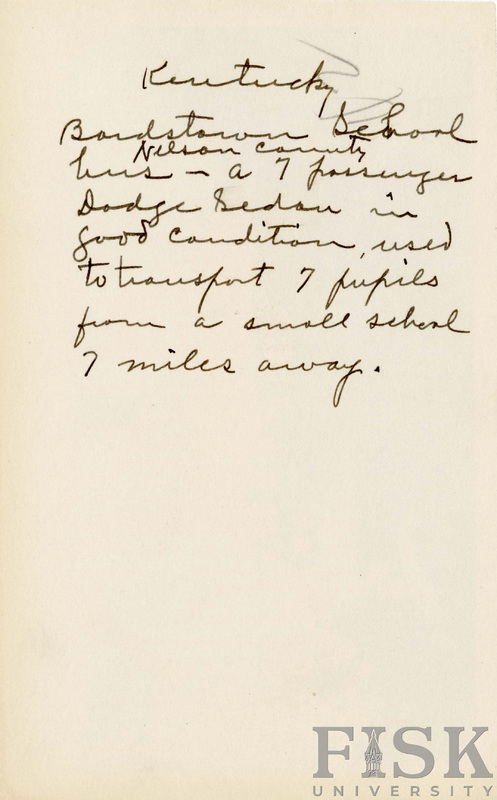 Kentucky
Bardstown School
Nelson County
bus - a 7 passenger
Dodge Sedan in
good condition, used
to transport 7 pupils
from a small school
7 miles away.
FISK
UNIVERSITY